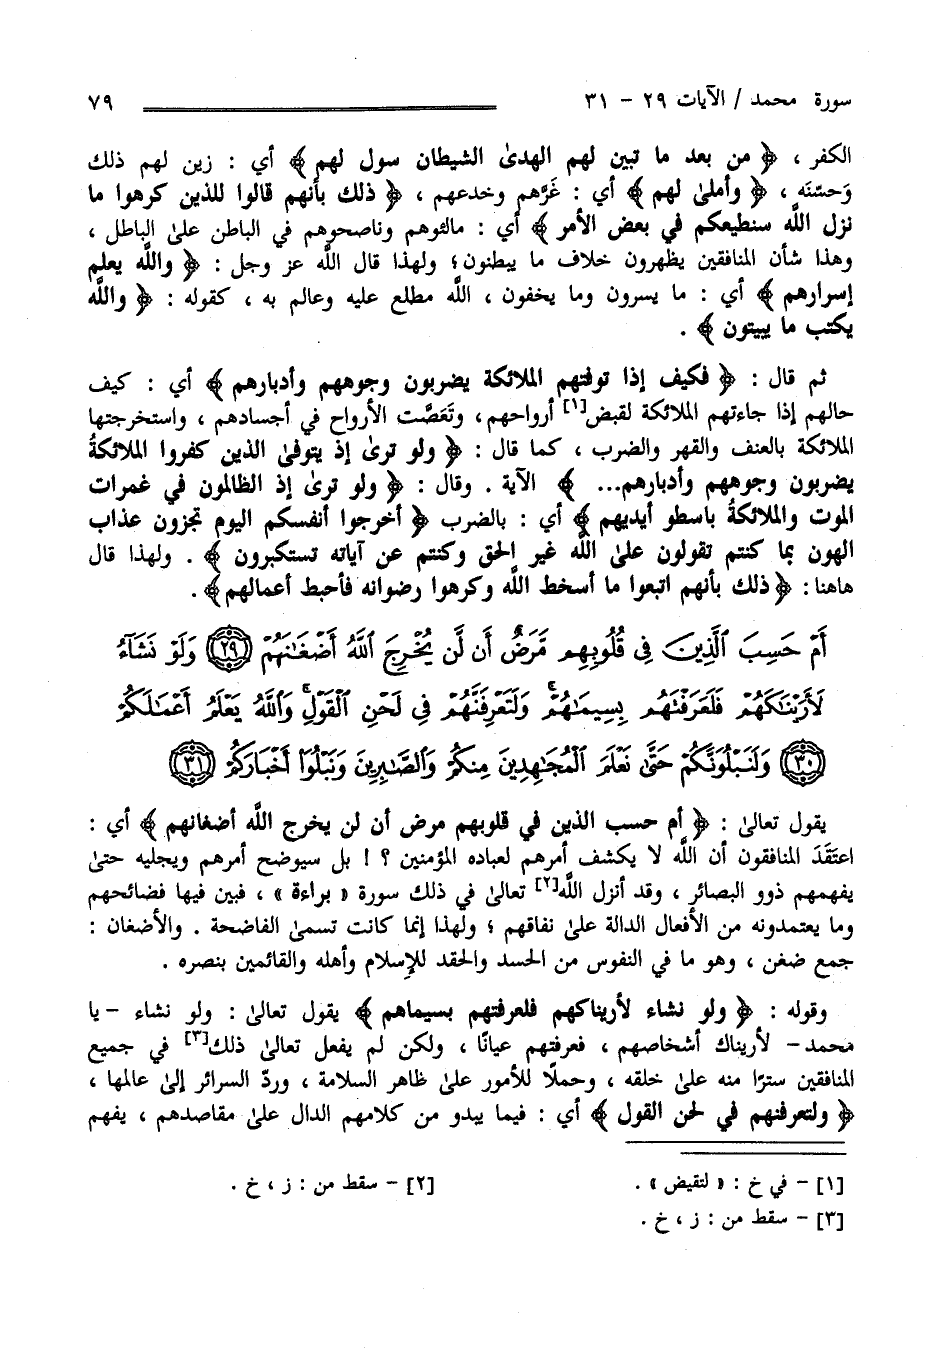 سورة محمد / الآيات ٢٩ - ٣١ ٧٩
الكفر ، ﴿ من بعد ما تبين لهم الهدىٰ الشيطان سول لهم ﴾ أي : زين لهم ذلك
وَحسّنَه ، ﴿ وأملىٰ لهم ﴾ أي : غَرَّهم وخدعهم ، ﴿ ذلك بأنهم قالوا للذين كرهوا ما
نزل اللَّه سنطيعكم في بعض الأمر ﴾ أي : مالئوهم وناصحوهم في الباطن علىٰ الباطل ،
وهذا شأن المنافقين يظهرون خلاف ما يبطنون؛ ولهذا قال اللَّه عز وجل : ﴿ واللَّه يعلم
إسرارهم ﴾ أي : ما يسرون وما يخفون ، اللَّه مطلع عليه وعالم به ، كقوله : ﴿ واللَّه
يكتب ما يبيتون ﴾ .
ثم قال : ﴿ فكيف إذا توفتهم الملائكة يضربون وجوههم وأدبارهم ﴾ أي : كيف
حالهم إذا جاءتهم الملائكة لقبض[١] أرواحهم، وتَعَصَّت الأرواح في أجسادهم ، واستخرجتها
الملائكة بالعنف والقهر والضرب ، كما قال : ﴿ ولو ترىٰ إذ يتوفىٰ الذين كفروا الملائكةُ
يضربون وجوههم وأدبارهم... ﴾ الآية . وقال : ﴿ ولو ترىٰ إذ الظالمون في غمرات
الموت والملائكةُ باسطو أيديهم ﴾ أي : بالضرب ﴿ أخرجوا أنفسكم اليوم تجزون عذاب
الهون بما كنتم تقولون علىٰ اللَّه غير الحق وكنتم عن آياته تستكبرون ﴾ . ولهذا قال
هاهنا : ﴿ ذلك بأنهم اتبعوا ما أسخط اللَّه وكرهوا رضوانه فأحبط أعمالهم ﴾ .
أَمْ حَسِبَ ٱلَّذِينَ فِى قُلُوبِهِم مَّرَضٌ أَن لَّن يُخْرِجَ ٱللَّهُ أَضْغَـٰنَهُمْ ﴿٢٩﴾ وَلَوْ نَشَآءُ
لَأَرَيْنَـٰكَهُمْ فَلَعَرَفْتَهُم بِسِيمَـٰهُمْ ۚ وَلَتَعْرِفَنَّهُمْ فِى لَحْنِ ٱلْقَوْلِ ۚ وَٱللَّهُ يَعْلَمُ أَعْمَـٰلَكُمْ
﴿٣٠﴾ وَلَنَبْلُوَنَّكُمْ حَتَّىٰ نَعْلَمَ ٱلْمُجَـٰهِدِينَ مِنكُمْ وَٱلصَّـٰبِرِينَ وَنَبْلُوَا۟ أَخْبَارَكُمْ ﴿٣١﴾
يقول تعالىٰ : ﴿ أم حسب الذين في قلوبهم مرض أن لن يخرج اللَّه أضغانهم ﴾ أي :
اعتَقَدَ المنافقون أن اللَّه لا يكشف أمرهم لعباده المؤمنين ؟ ! بل سيوضح أمرهم ويجليه حتىٰ
يفهمهم ذوو البصائر ، وقد أنزل اللَّه[٢] تعالىٰ في ذلك سورة « براءة » ، فبين فيها فضائحهم
وما يعتمدونه من الأفعال الدالة علىٰ نفاقهم ؛ ولهذا إنما كانت تسمىٰ الفاضحة . والأضغان :
جمع ضغن ، وهو ما في النفوس من الحسد والحقد للإسلام وأهله والقائمين بنصره .
وقوله : ﴿ ولو نشاء لأريناكهم فلعرفتهم بسيماهم ﴾ يقول تعالىٰ : ولو نشاء - يا
محمد - لأريناك أشخاصهم ، فعرفتهم عيانًا ، ولكن لم يفعل تعالىٰ ذلك[٣] في جميع
المنافقين سترًا منه علىٰ خلقه ، وحملًا للأمور علىٰ ظاهر السلامة ، وردّ السرائر إلىٰ عالمها ،
﴿ ولتعرفنهم في لحن القول ﴾ أي : فيما يبدو من كلامهم الدال علىٰ مقاصدهم ، يفهم
[١] - في خ : « لتقيض » . [٢] - سقط من : ز ، خ .
[٣] - سقط من : ز ، خ .